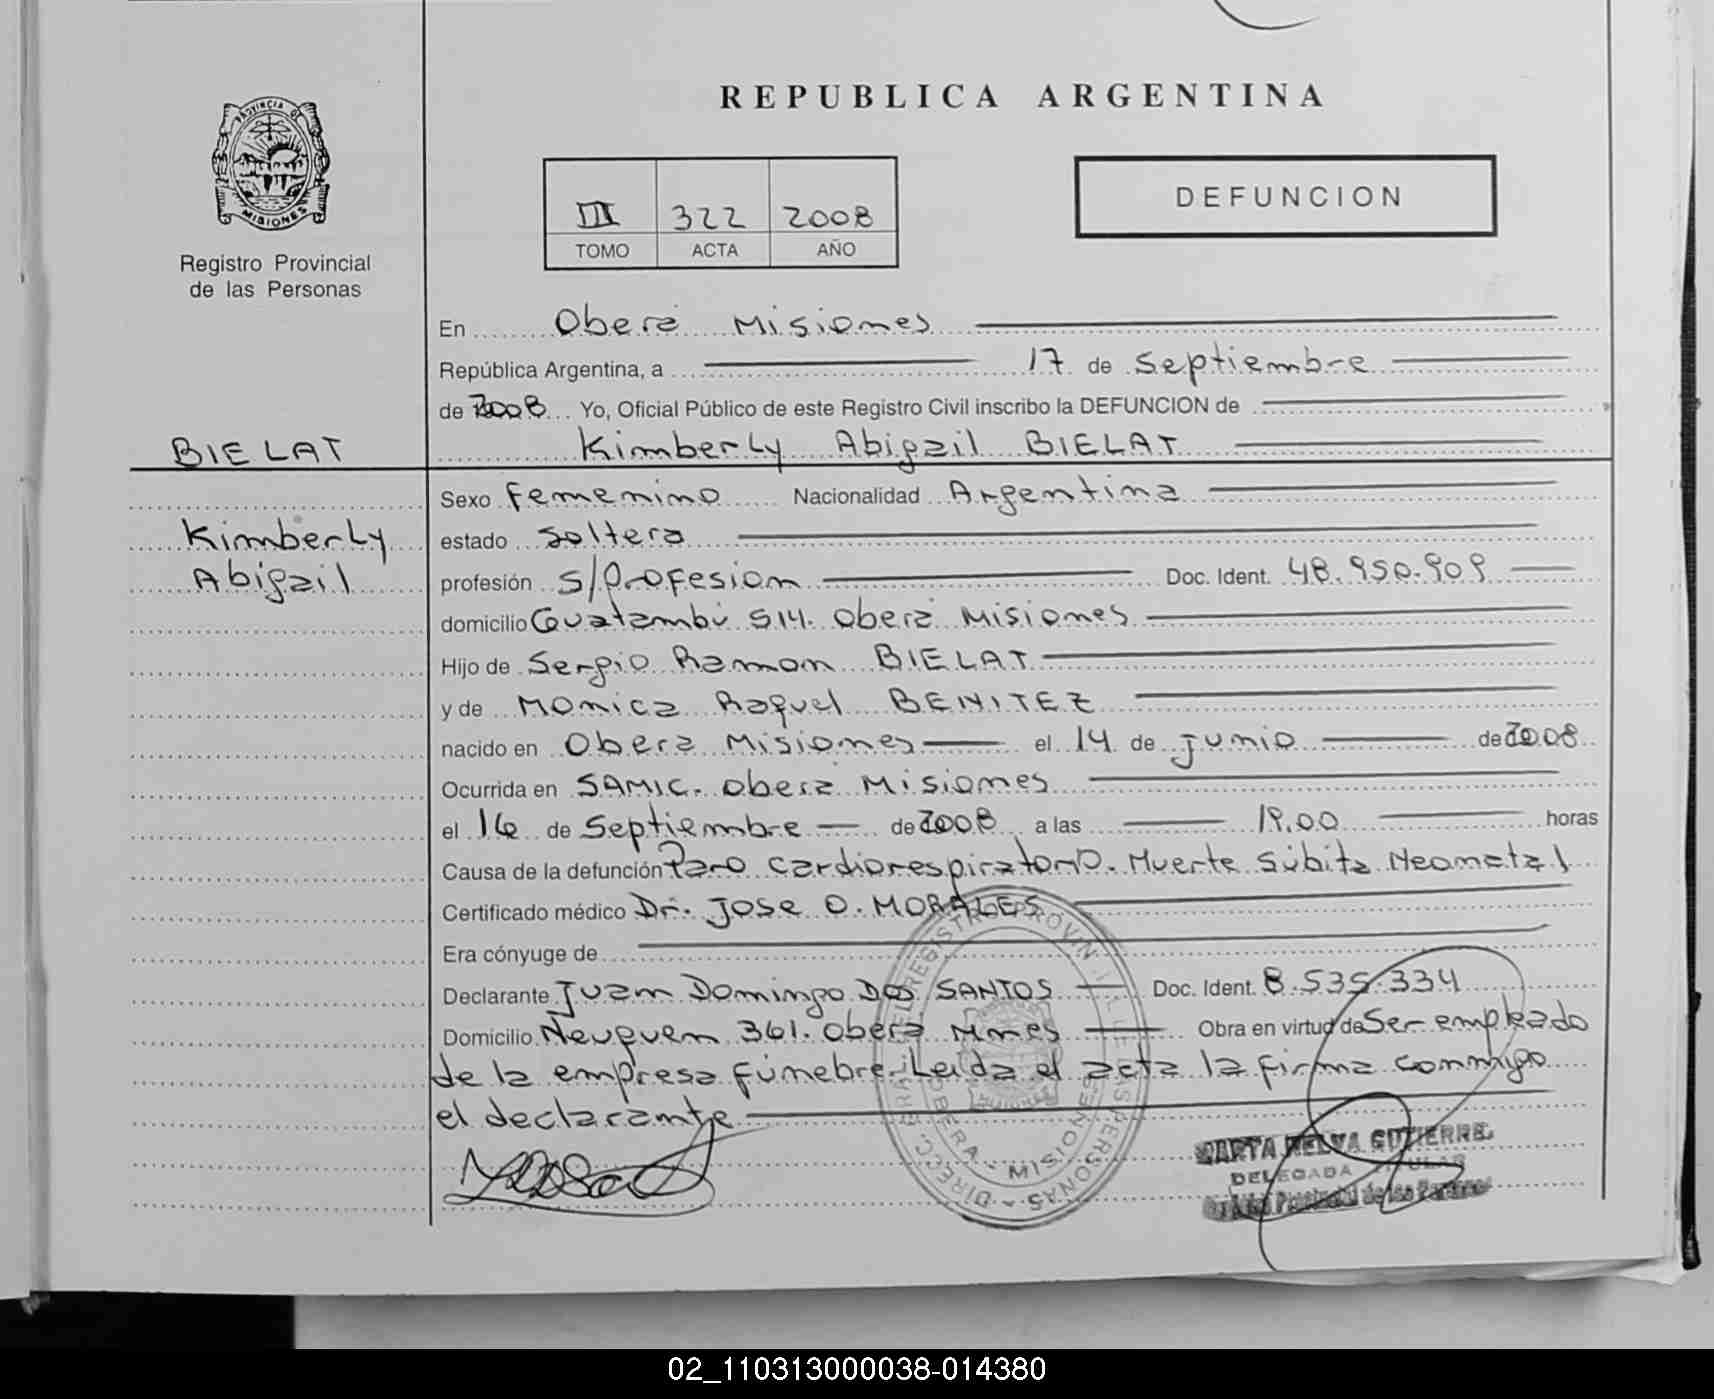 REPUBLICA ARGENTINA
PROVINCIA DE
MISIONES
Registro Provincial
de las Personas
III 322 2008
TOMO ACTA AÑO
DEFUNCION
En Oberá Misiones
República Argentina, a 17 de Septiembre
de 2008 Yo, Oficial Público de este Registro Civil inscribo la DEFUNCION de
BIELAT
Kimberly Abigail BIELAT
Sexo Femenino Nacionalidad Argentina
Kimberly
estado soltera
Abigail
profesión s/profesion Doc. Ident. 48.950.909
domicilio Guatambú 514. Oberá Misiones
Hijo de Sergio Ramon BIELAT
y de Monica Raquel BENITEZ
nacido en Oberá Misiones el 14 de junio de 2008
Ocurrida en SAMIC. Oberá Misiones
el 16 de Septiembre de 2008 a las 19.00 horas
Causa de la defunción Paro cardiorespiratorio. Muerte Súbita Neonatal
Certificado médico Dr. Jose O. MORALES
Era cónyuge de
Declarante Juan Domingo DOS SANTOS Doc. Ident. 8.535.334
Domicilio Neuquen 361. Oberá Mnes Obra en virtud de Ser empleado
de la empresa fúnebre. Leída el acta la firma conmigo
el declarante
OBERA - MISIONES
MARTA NELVA GUTIERRE
DELEGADA TITULAR
02_110313000038-014380